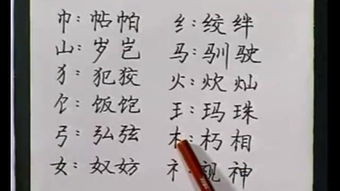 巾：帖帕
山：岁岂
犭：犯狡
饣：饭饱
弓：弘弦
女：奴妨
纟：绞绊
马：驯驶
火：炊灿
王：玛珠
木：朽相
礻：视神